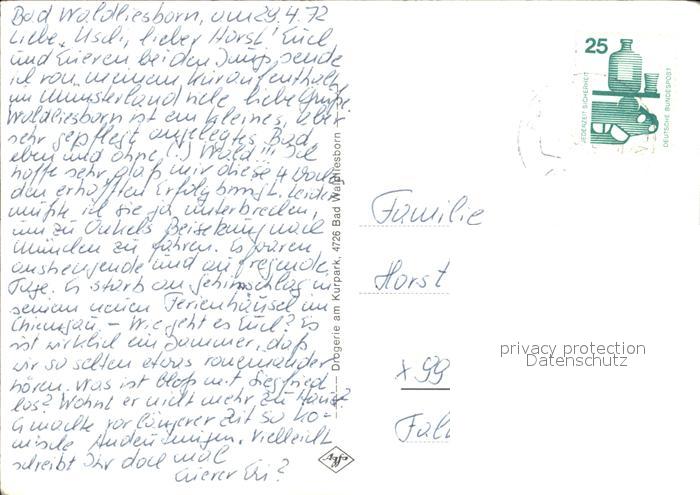 Bad Waldliesborn, am 29.4.72
Liebe Uschi, lieber Horst! Euch
und Eueren beiden Jungs sende
ich von meinem Kuraufenthalt
im Münsterland viele liebe Grüße.
Waldliesborn ist ein kleines, aber
sehr gepflegt angelegtes Bad
eben und ohne (!) Wald!!! Ich
hoffe sehr, daß mir diese 4 Wochen
den erhofften Erfolg bringt. Leider
mußte ich sie ja unterbrechen,
um zu Onkels Beisetzung nach
München zu fahren. Es waren
anstrengende und aufregende
Tage. Er starb an Gehirnschlag in
seinem neuen Ferienhäusel im
Chiemgau. – Wie geht es Euch? Es
ist wirklich ein Jammer, daß
wir so selten etwas voneinander
hören. Was ist bloß mit Siegfried
los? Wohnt er nicht mehr zu Haus?
G machte vor längerer Zeit so ko-
mische Andeutungen. Vielleicht
schreibt Ihr doch mal
Euerer
Drogerie am Kurpark, 4726 Bad Waldliesborn
Agfa
25
JEDERZEIT SICHERHEIT
DEUTSCHE BUNDESPOST
Familie
Horst
privacy protection
Datenschutz
x 99